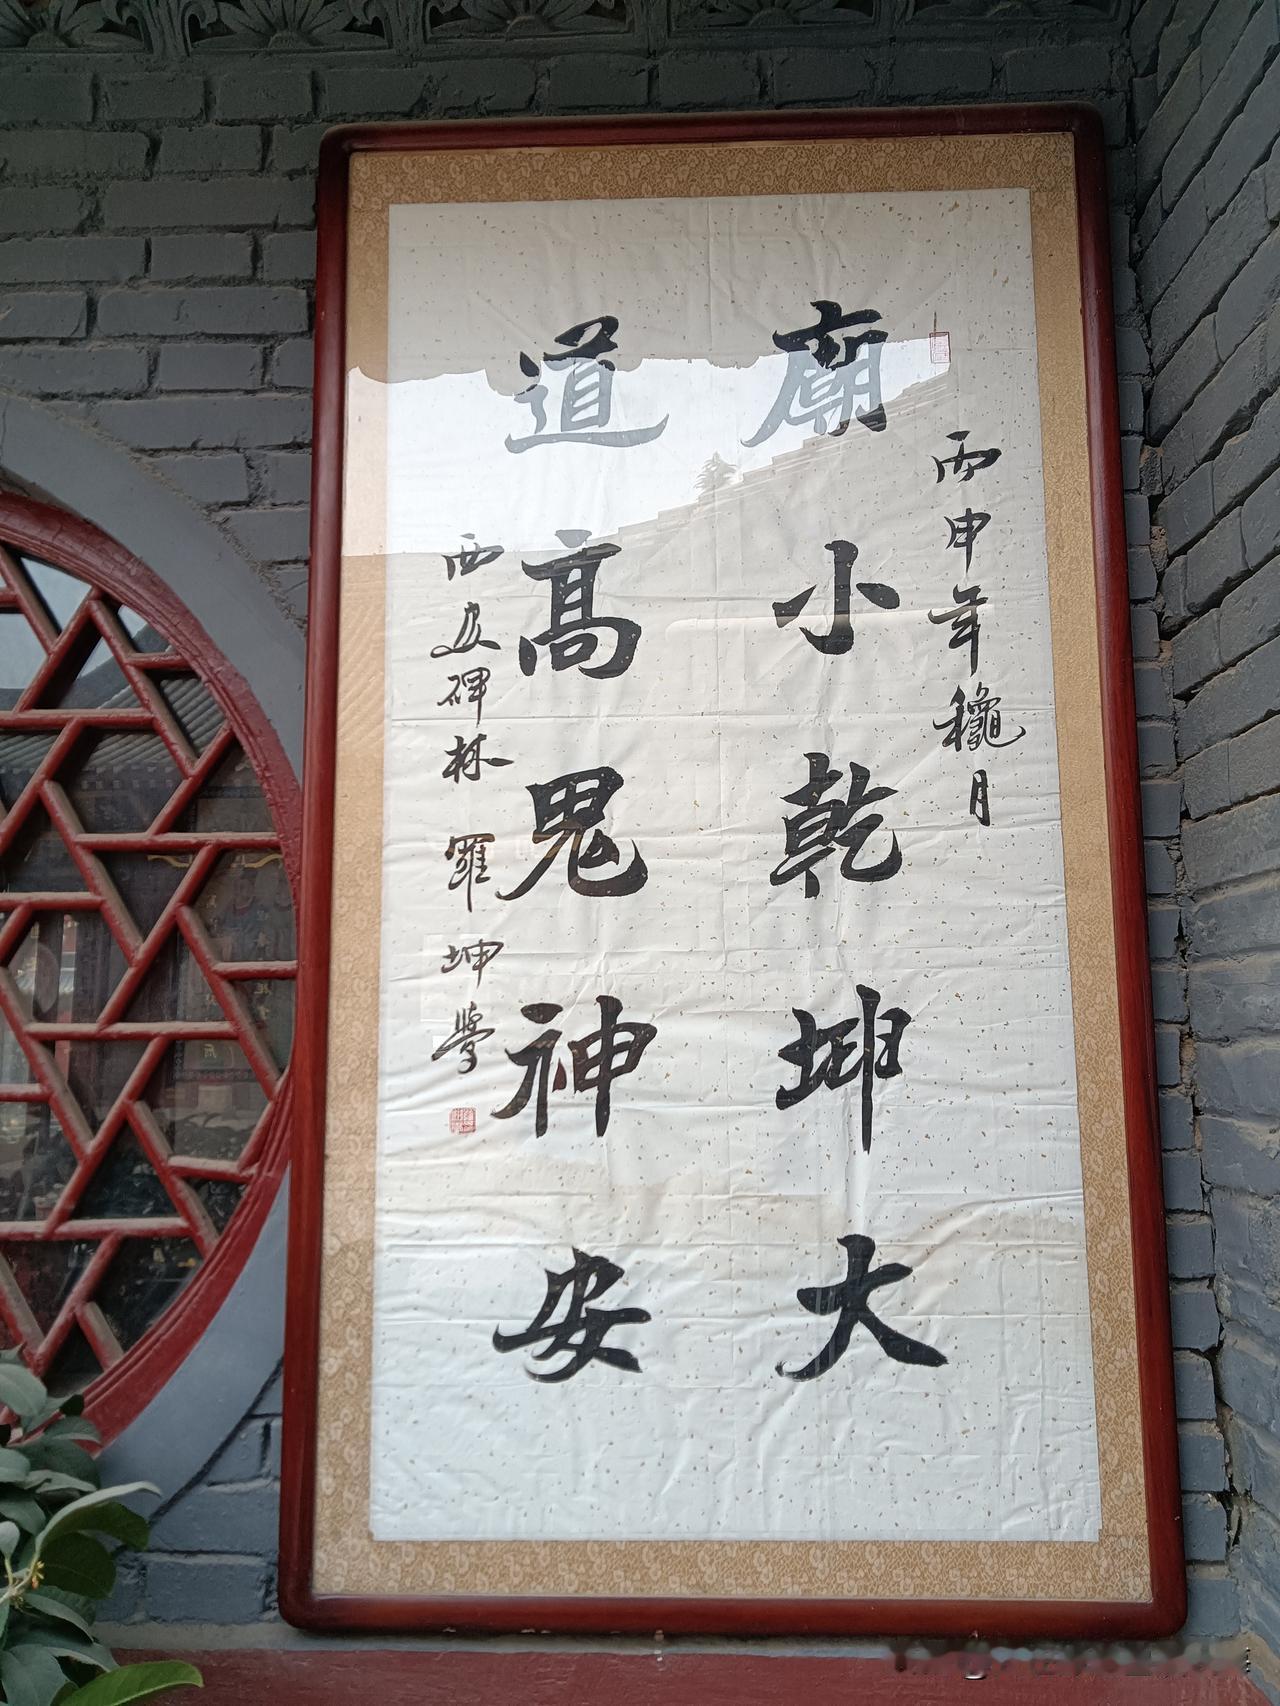 丙申年穐月
廟小乾坤大
道高鬼神安
西安碑林 羅坤學